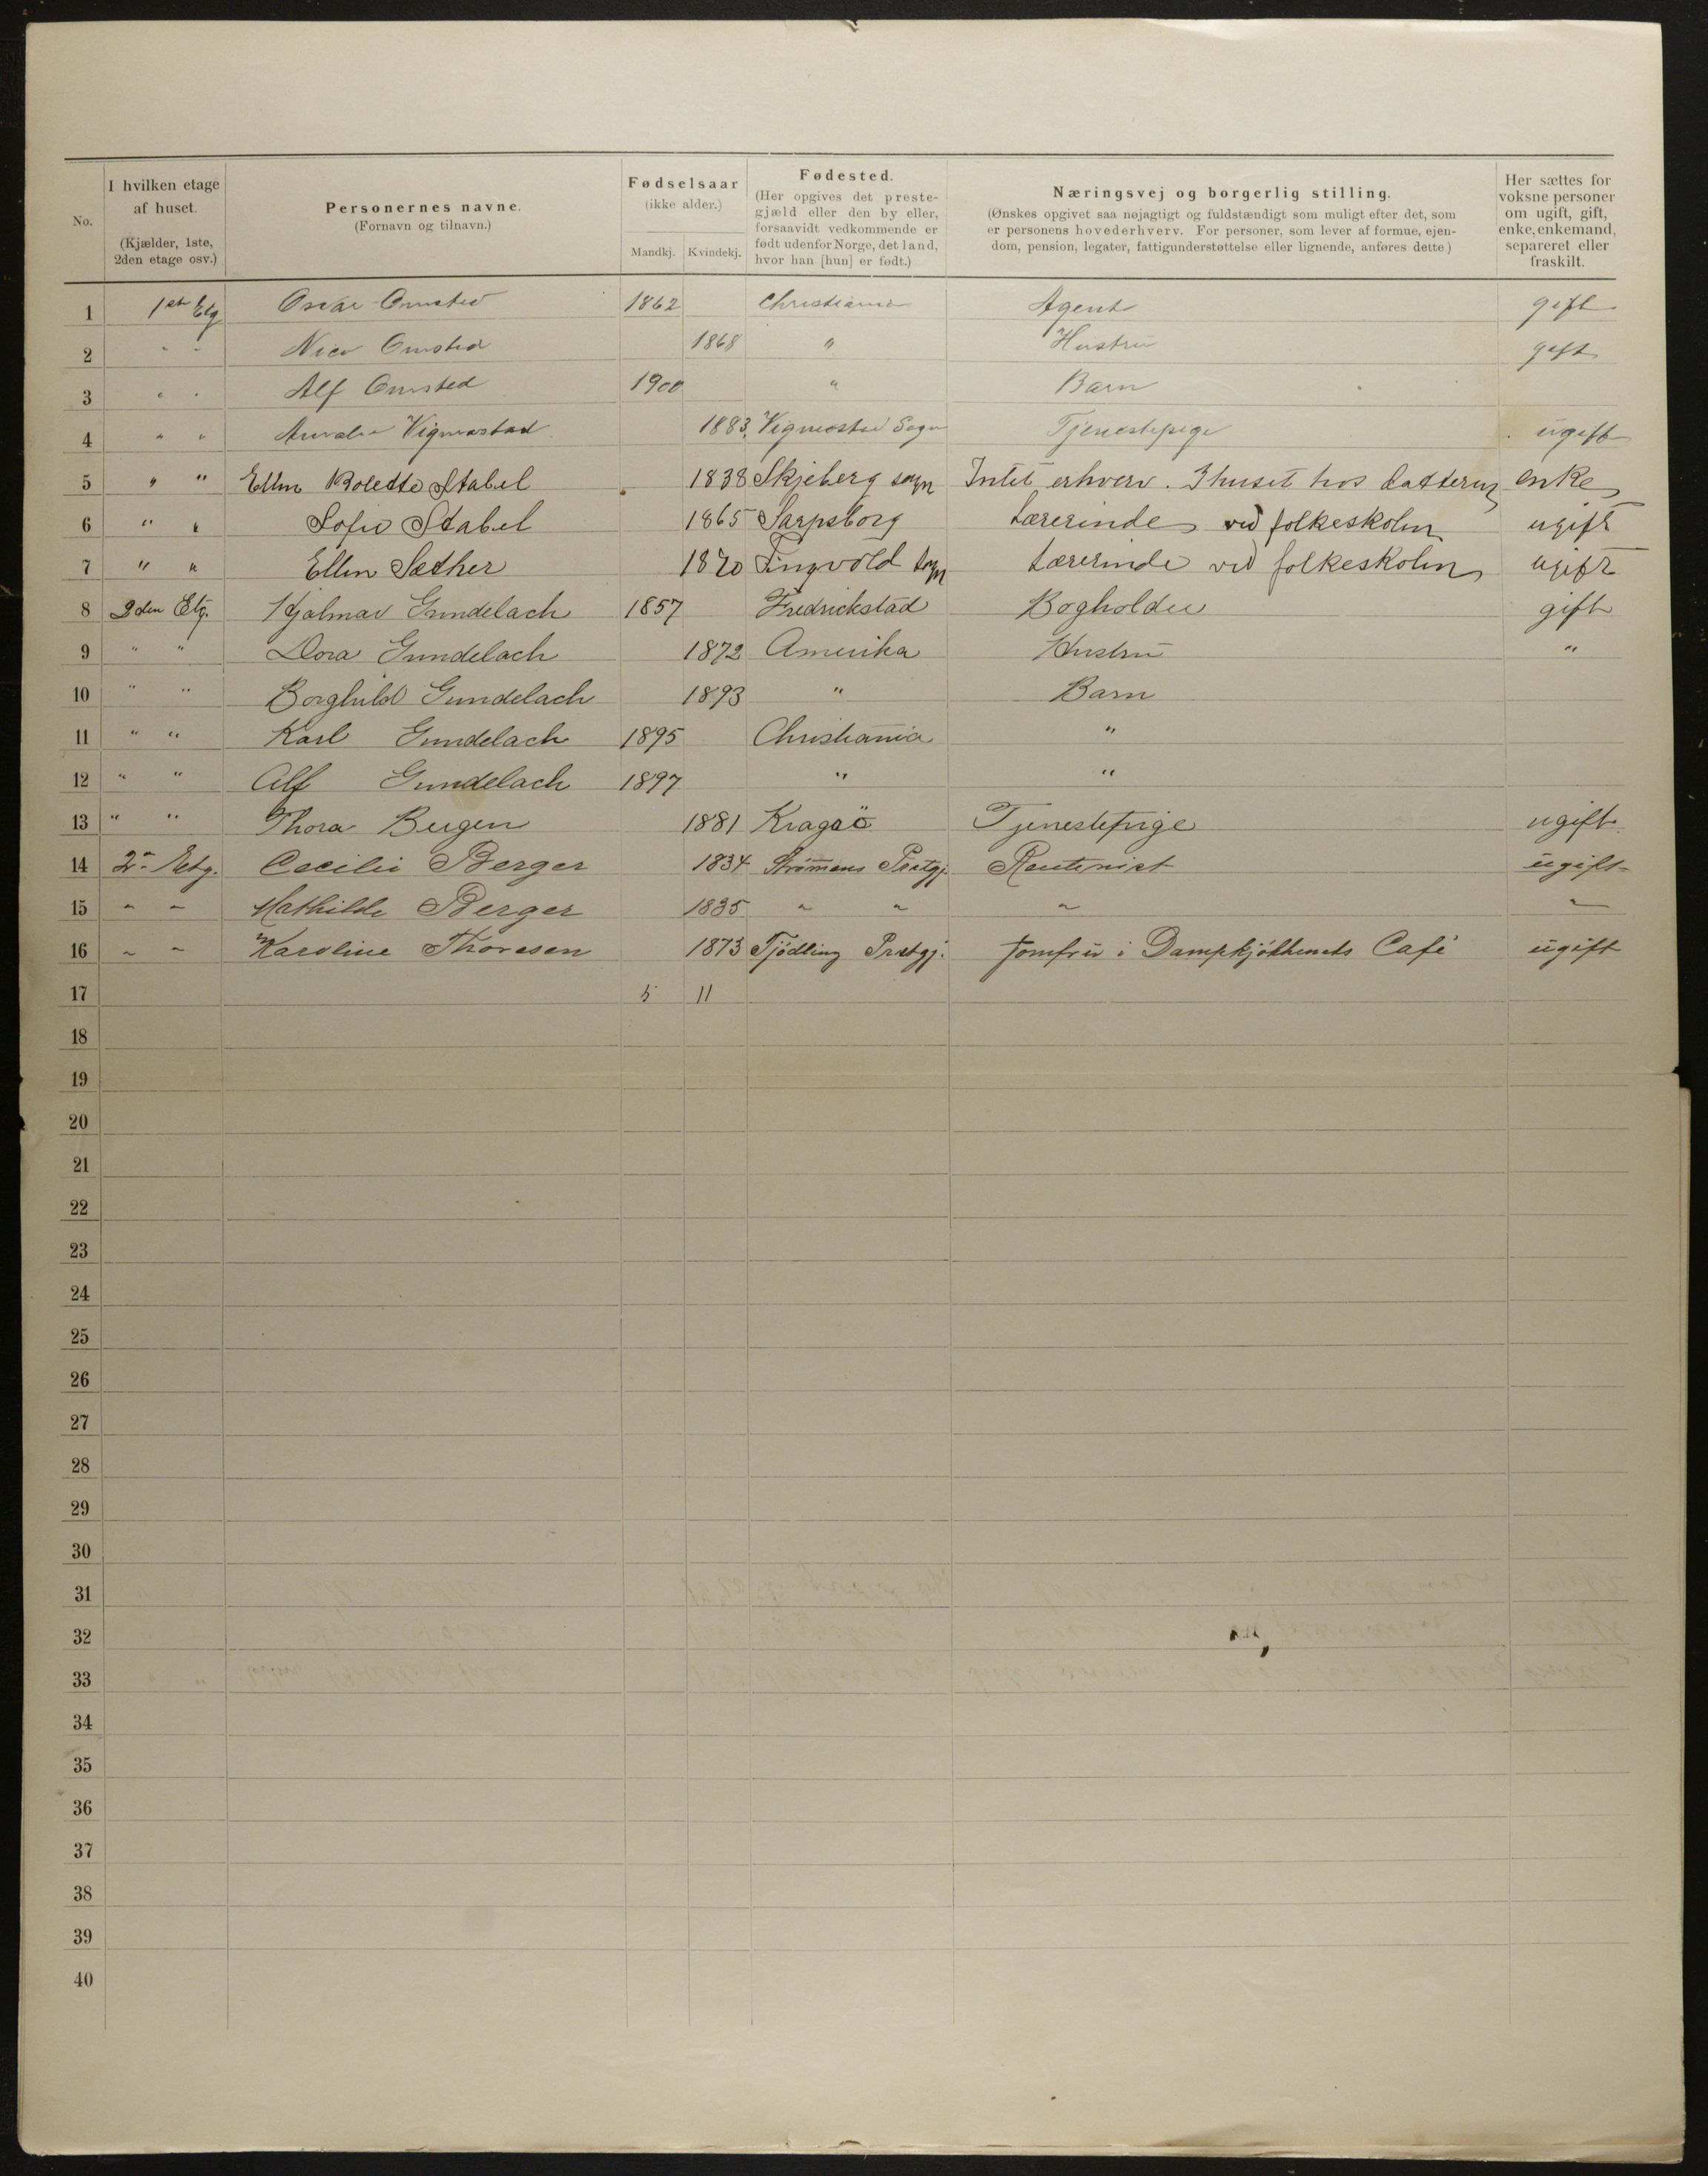 No.
I hvilken etage af huset. (Kjælder, 1ste, 2den etage osv.)
Personernes navne. (Fornavn og tilnavn.)
Fødselsaar (ikke alder.) Mandkj. Kvindekj.
Fødested. (Her opgives det prestegjæld eller den by eller, forsaavidt vedkommende er født udenfor Norge, det land, hvor han [hun] er født.)
Næringsvej og borgerlig stilling. (Ønskes opgivet saa nøjagtigt og fuldstændigt som muligt efter det, som er personens hovederhverv. For personer, som lever af formue, ejendom, pension, legater, fattigunderstøttelse eller lignende, anføres dette)
Her sættes for voksne personer om ugift, gift, enke, enkemand, separeret eller fraskilt.
1 1ste Etg Oscar Omsted 1862 Christiania Agent gift
2 " " Omsted 1868 " Hustru gift
3 " " Alf Omsted 1900 " Barn
4 " " Vigmostad 1883 Vigmostad Sogn Tjenestepige ugift
5 " " Ellen Bolette Stabel 1838 Skjeberg sogn Intet erhverv. I huset hos datteren enke
6 " " Sofie Stabel 1865 Sarpsborg Lærerinde ved folkeskolen ugift
7 " " Ellen Sæther 1870 Tingvold sogn Lærerinde ved folkeskolen ugift
8 2den Etg. Hjalmar Gundelach 1857 Fredrickstad Bogholder gift
9 " " Dora Gundelach 1872 Amerika Hustru "
10 " " Borghild Gundelach 1893 " Barn
11 " " Karl Gundelach 1895 Christiania "
12 " " Alf Gundelach 1897 " "
13 " " Thora Bergen 1881 Kragaö Tjenestepige ugift
14 2- Etg. Cecilie Berger 1834 Strömmens Prstgj. Rentenist ugift
15 " " Mathilde Berger 1835 " " " "
16 " " Karoline Thoresen 1873 Tjödling Prstgj. Jomfru i Dampkjökkenets Café ugift
17 5 11
18
19
20
21
22
23
24
25
26
27
28
29
30
31
32
33
34
35
36
37
38
39
40